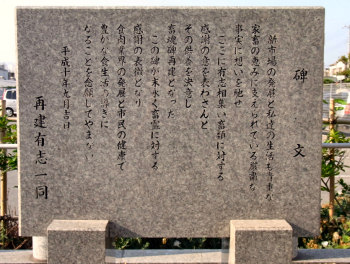 碑文
新市場の発祥と私達の生活も豊かな
家畜の恵みに支えられている厳粛な
事実に想いを馳せ
ここに有志相集い畜類に対する
感謝の意を表わさんと
その供養を決意し
畜魂碑再建となった
この碑が末永く畜霊に対する
感謝の表徴となり
食肉業界の発展と市民の健康で
豊かな食生活の導きに
なることを念願してやまない
平成十年九月吉日
再建有志一同